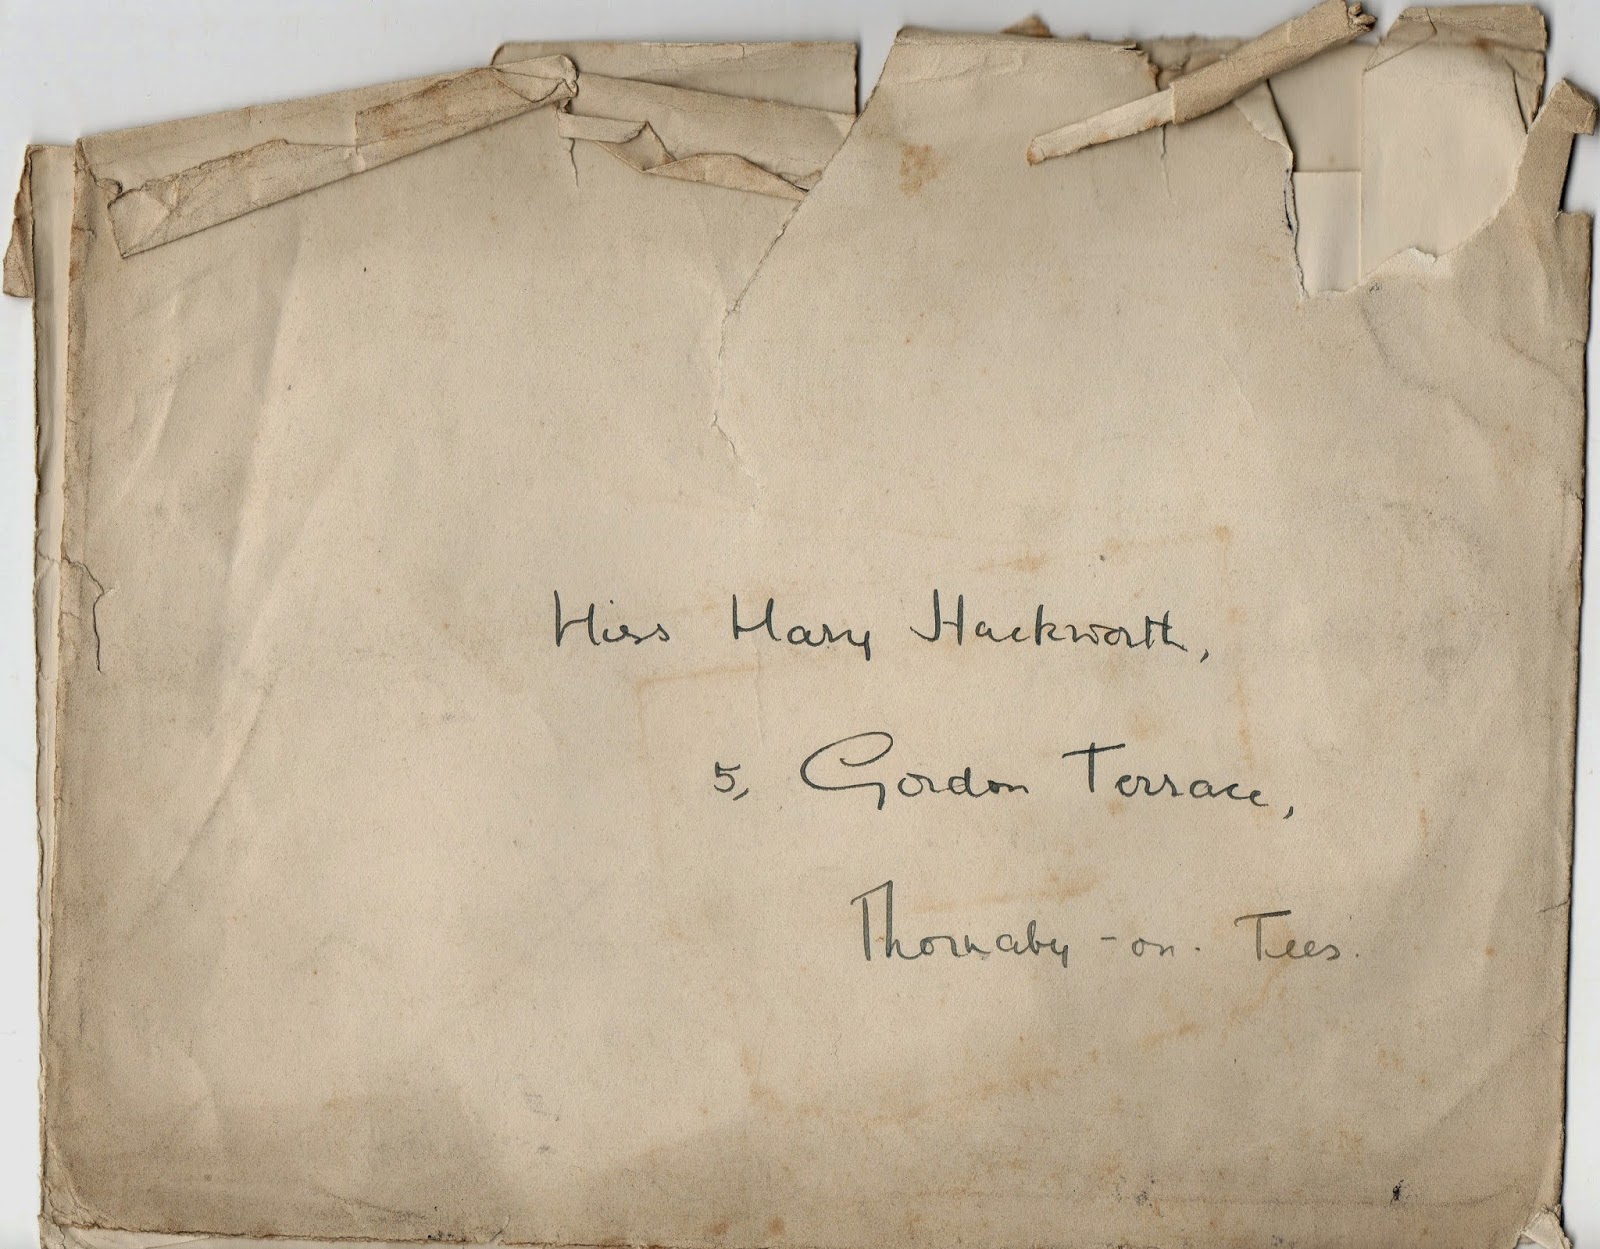 Miss Mary Hackworth,
5, Gordon Terrace,
Thornaby-on-Tees.